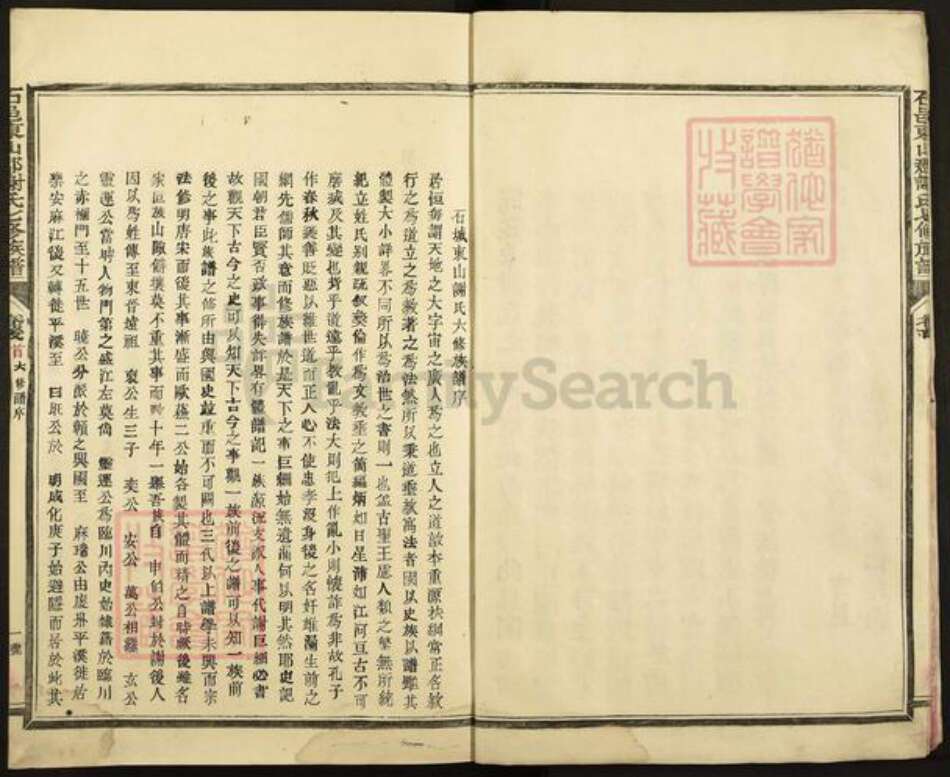 石城東山謝氏六修族譜序
君恒每謂天地之大宇宙之廣人為之也立人之道敦本重源扶綱常正名教
行之為道立之為教著之為法然所以秉道垂教寓法者國以史族以譜雖其
體製大小詳畧不同所以為治世之書則一也盖古聖王慮人類之繁無所統
紀立姓氏別親疏叙彜倫作為文教垂之簡編炳如日星沛如江河亘古不可
磨滅及其變也背乎道遠乎教亂乎法大則犯上作亂小則懷詐為非故孔子
作春秋褒善貶惡以維世道而正人心不使忠孝沒身後之名奸雄漏生前之
網先儒師其意而修族譜於是天下之事巨細始無遺漏何以明其然耶史記
國朝君臣賢否政事得失詳畧有體譜記一族源流支派人事代謝巨細必書
故觀天下古今之史可以知天下古今之事觀一族前後之譜可以知一族前
後之事此族譜之修所由與國史並重而不可闕也三代以上譜學未興而宗
法修明唐宋而後其事漸盛而歐蘇二公始各製其體而精之自時厥後雖名
家巨族山陬僻壤莫不重其事而 十年一舉吾族自 申伯公封於謝後人
因以為姓傳至東晉遠祖 裒公生三子 奕公 安公 萬公相繼 玄公
靈運公當時人物門第之盛江左莫尚 靈運公為臨川內史始隸籍於臨川
之赤 門至十五世 曉公分派於贛之興國至 麻 公由虔 平溪徙居
樂安麻江後又轉徙平溪至 曰 公於 明成化庚子始避隱而居於此其
石邑東山 謝氏七修族譜
卷首
六修譜序
FamilySearch